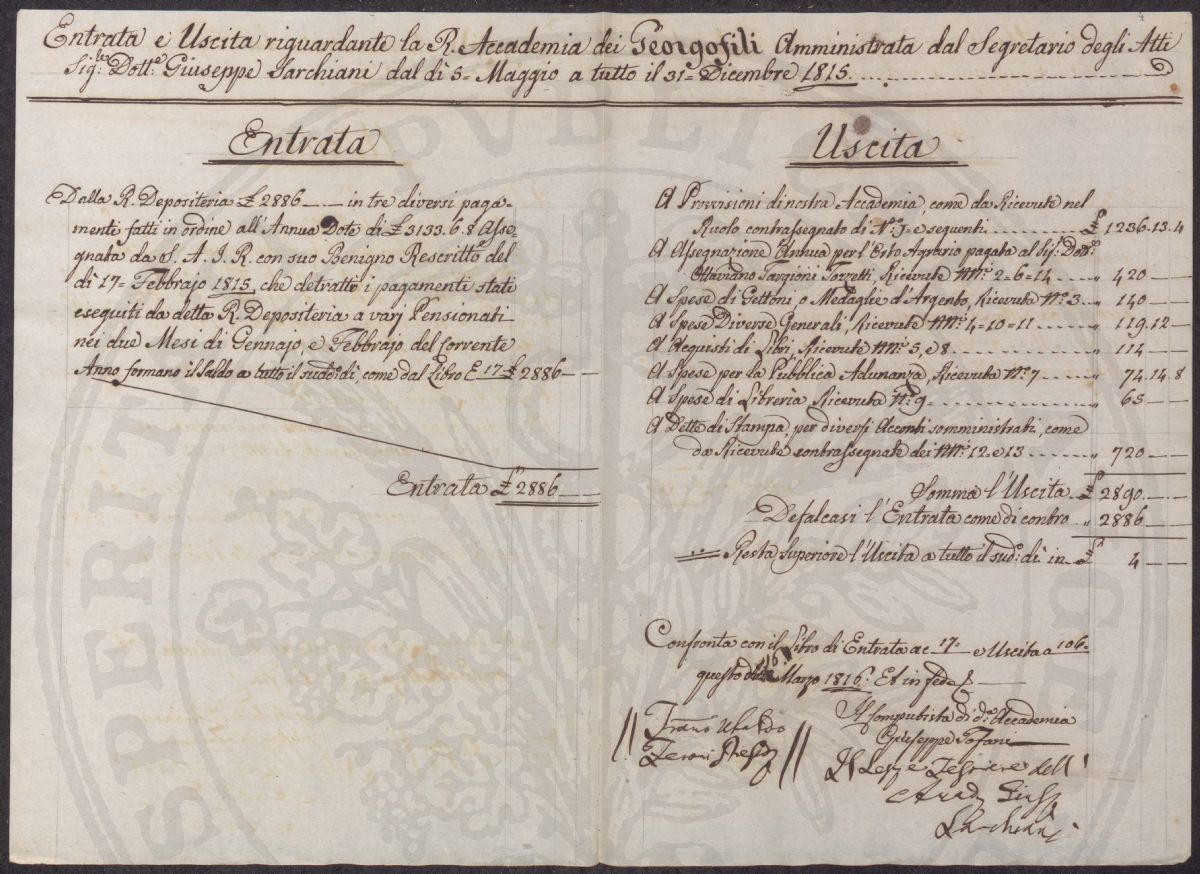 Entrata e Uscita riguardante la R. Accademia dei Georgofili Amministrata dal Segretario degli Atti
Sigre. Dotto. Giuseppe Sarchiani dal dì 5= Maggio a tutto il 31= Dicembre 1815.
Entrata
Dalla R. Depositeria £ 2886 —— in tre diversi paga-
menti fatti in ordine all'Annua Dote di £ 3133.6.8 Asse-
gnata da S. A. I. R. con suo Benigno Rescritto del
dì 17= Febbrajo 1815, che detratto i pagamenti stati
eseguiti da detta R. Depositeria a varj Pensionati
nei due Mesi di Gennajo, e Febbrajo del corrente
Anno formano il saldo a tutto il sudd.o dì, come dal Libro E 17 £ 2886 — —
Entrata £ 2886 — —
Uscita
A Provvisioni di nostra Accademia, come da Ricevute nel
Ruolo contrassegnato di N.o 1 e seguenti £ 1236.13.4
A Assegnazione Annua per l'Orto Agrario pagata al Sig.r Dott.o
Ottaviano Targioni Tozzetti, Ricevute NN.i 2-6-14 " 420 — —
A Spese di Gettoni, o Medaglie d'Argento, Ricevuta N.o 3 " 140 — —
A Spese Diverse Generali, Ricevute NN.i 4-10-11 " 119.12 —
A Acquisti di Libri, Ricevute NN.i 5, e 8 " 114 — —
A Spese per la Pubblica Adunanza, Ricevuta N.o 7 " 74.14.8
A Spese di Libreria Ricevuta N.o 9 " 65 — —
A Dette di Stampa, per diversi Acconti somministrati, come
da Ricevute contrassegnate dei NN.i 12 e 13 " 720 — —
Somma l'Uscita £ 2890 — —
Defalcasi l'Entrata come di contro " 2886 — —
Resta Superiore l'Uscita a tutto il sud.o dì in £ 4 — —
Confronta con il Libro di Entrata a c 17= e Uscita a 106=
questo dì 16 Marzo 1816. Et in fede
Il Computista di d.a Accademia
Giuseppe Tofani
Franc Ubaldo
SPERITÀ
PVBLI